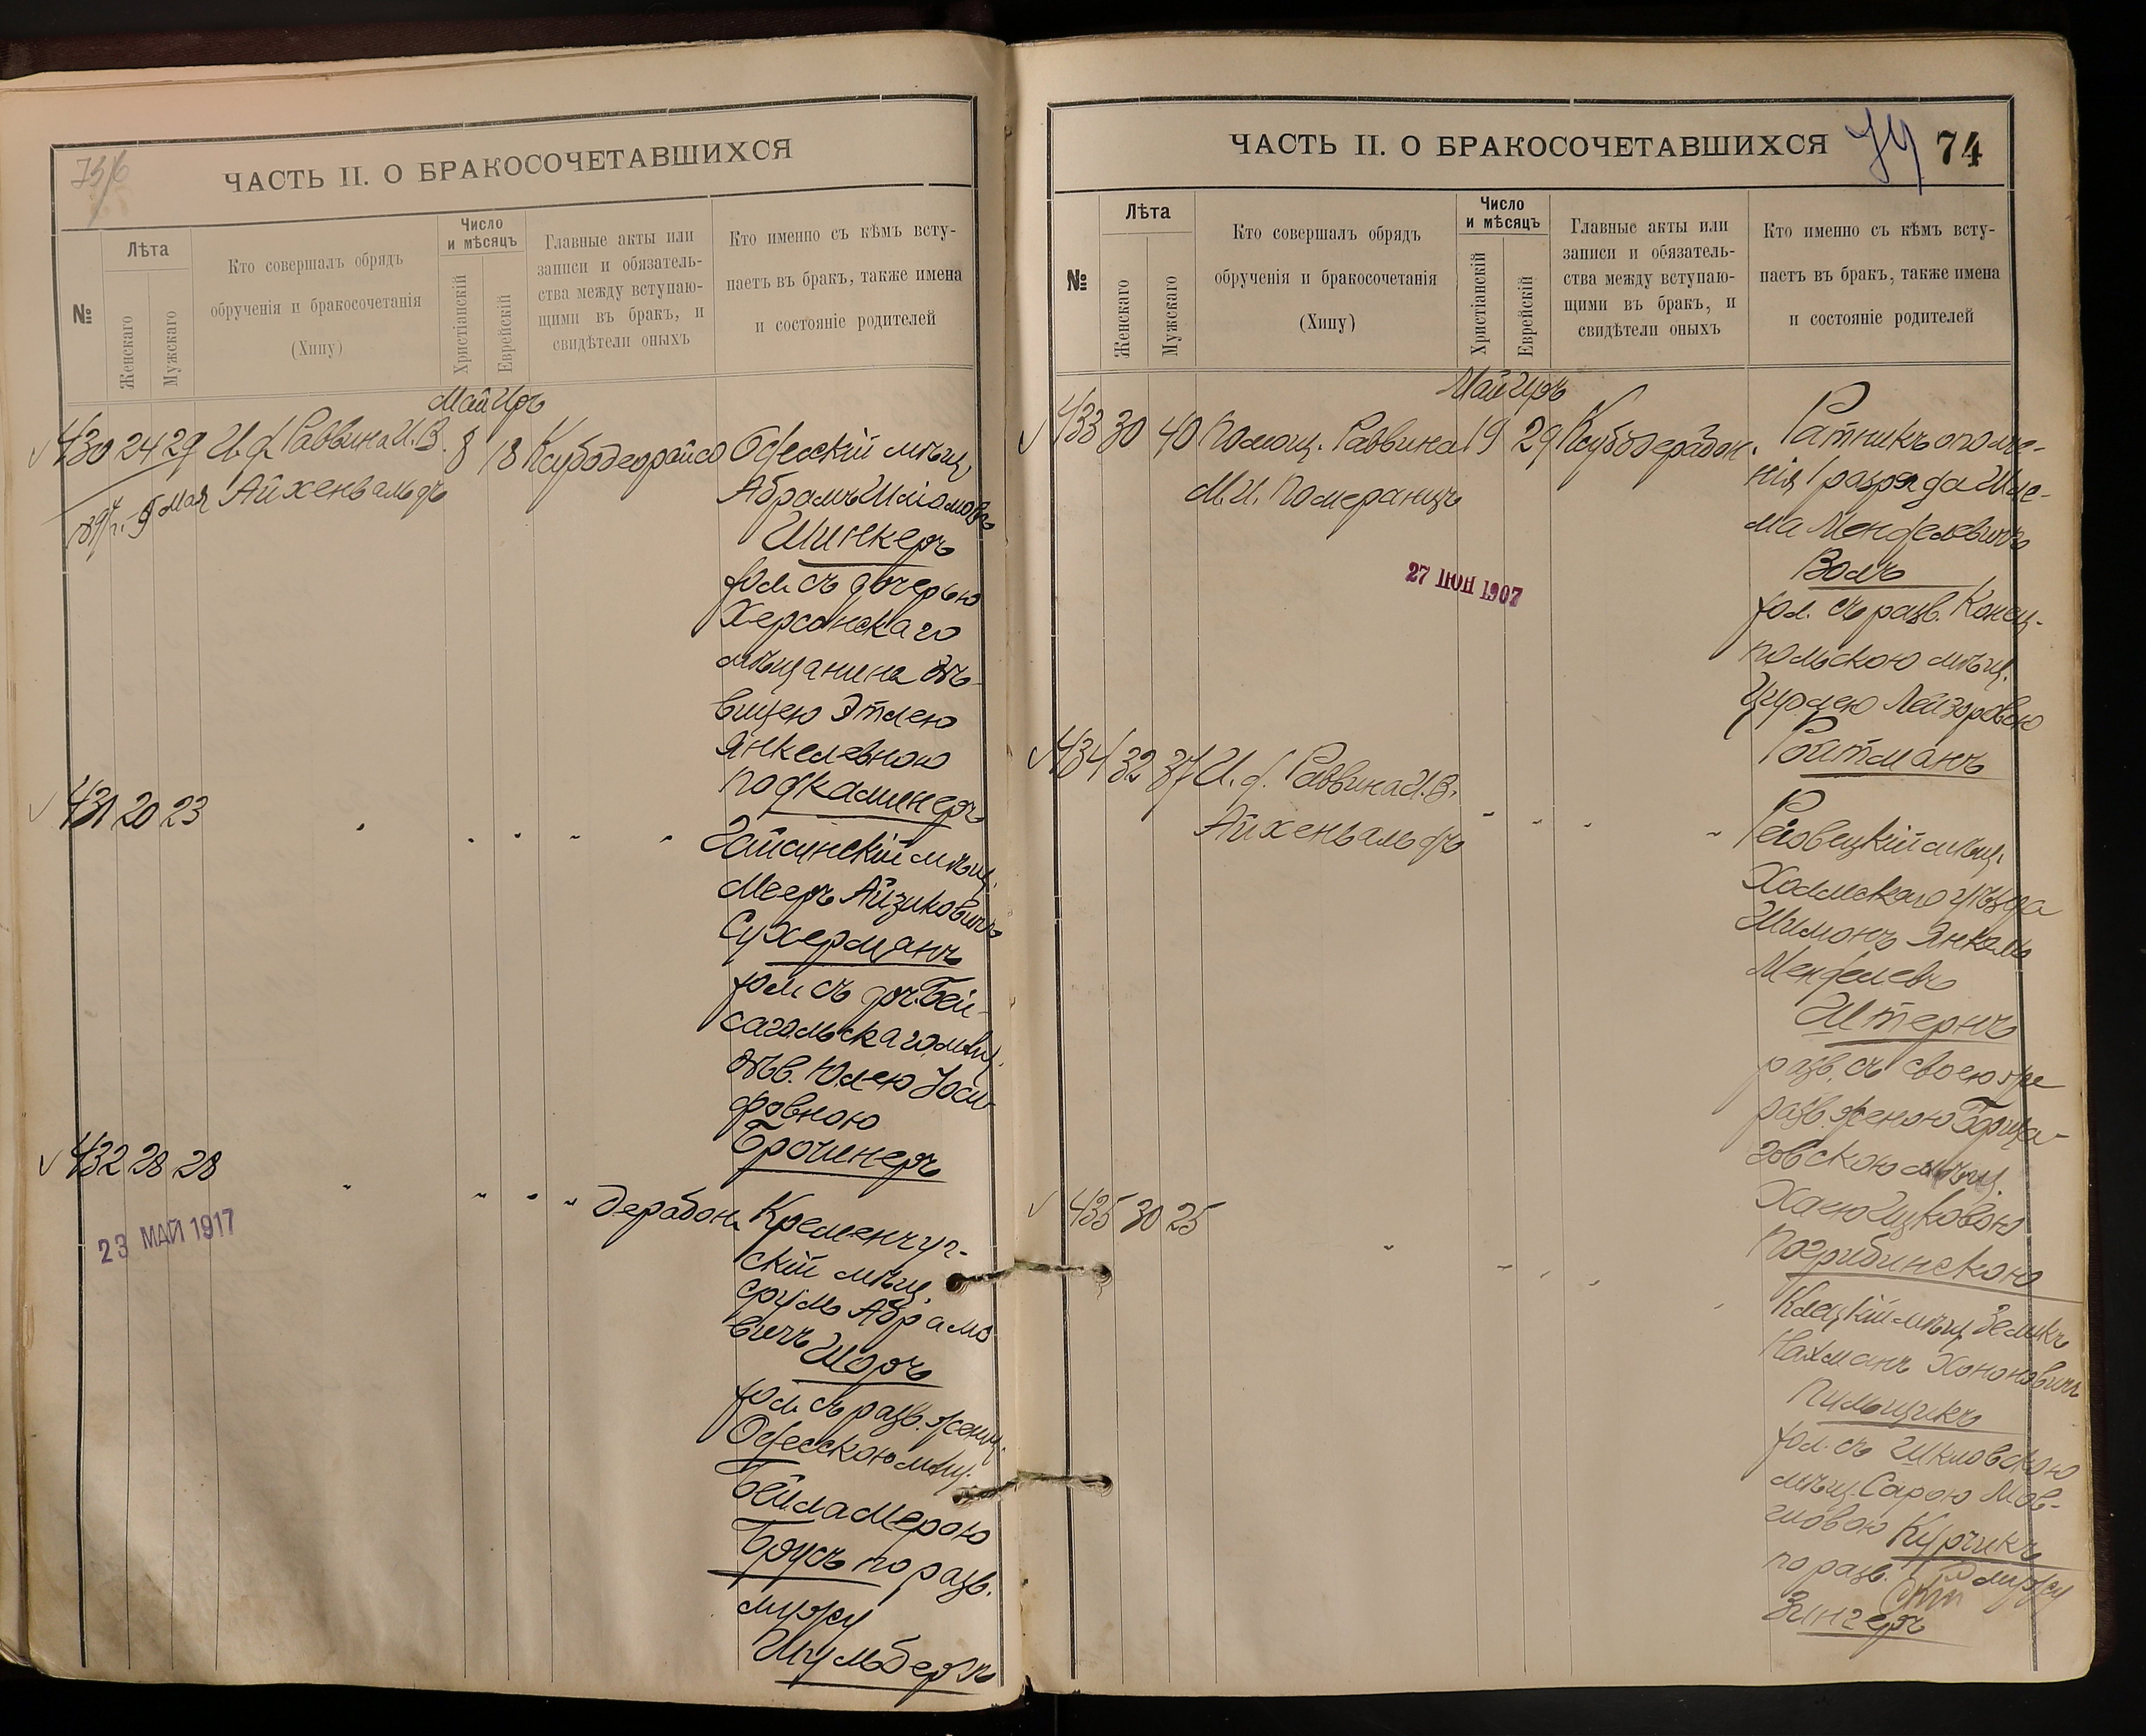 ЧАСТЬ II. О БРАКОСОЧЕТАВШИХСЯ
№
Лѣта
Женскаго
Мужскаго
Кто совершалъ обрядъ
обрученія и бракосочетанія
(Хипу)
Число
и мѣсяцъ
Христіанскій
Еврейскій
Главные акты или
записи и обязатель-
ства между вступаю-
щими въ бракъ, и
свидѣтели оныхъ
Кто именно съ кѣмъ всту-
паетъ въ бракъ, также имена
и состояніе родителей
Май Иръ
430 24 29 И.д. Раввина И.В. 8 18
Айхенвальдъ
Одесскій мѣщ.
Абрамъ
Шинкеръ
хол. съ дочерью
Херсонскаго
мѣщанина дѣ-
вицею Этлею
Янкелевною
Подкаминеръ
431 20 23 " " " " "
Гайсинскій мѣщ.
Мееръ Айзиковичъ
Сухерманъ
хол. съ доч. Бей-
сагольскаго мѣщ.
дѣв. Юлею Іоси-
фовною
Брочинеръ
432 28 28 " " " "
Дерабон.
23 МАЙ 1917
Кременчуг-
скій мѣщ.
Сруль Абрамо
вичъ Шоръ
хол. съ разв. жен.
Одесскою мѣщ.
Бейла Мерою
Брусъ по разв.
мужу
Шульбергъ
ЧАСТЬ II. О БРАКОСОЧЕТАВШИХСЯ
74 74
№
Лѣта
Женскаго
Мужскаго
Кто совершалъ обрядъ
обрученія и бракосочетанія
(Хипу)
Число
и мѣсяцъ
Христіанскій
Еврейскій
Главные акты или
записи и обязатель-
ства между вступаю-
щими въ бракъ, и
свидѣтели оныхъ
Кто именно съ кѣмъ всту-
паетъ въ бракъ, также имена
и состояніе родителей
Май Иръ
433 30 40 Помощ. Раввина 19 29
М.И. Померанцъ
27 ІЮН 1907
Ратникъ ополче-
нія 1 разряда Шле-
ма Менделевичъ
Волъ
хол. съ разв. Конец-
польскою мѣщ.
Цурлею Лейзоровою
Ройтманъ
434 32 37 И.д. Раввина И.В.
Айхенвальдъ " " " "
мѣщ.
Холмскаго уѣзда
Шимонъ Янкель
Менделевъ
Штернъ
разв. съ своею же
разв. женою Борща-
говскою мѣщ.
Хаею Ицковою
Погребинскою
435 30 25 " " " " "
Клецкій мѣщ. Зеликъ
Нахманъ Хононовичъ
Пильщикъ
хол. съ Шкловскою
мѣщ. Сарою Мов-
шовою Курчикъ
по разв. мужу
Зингеръ